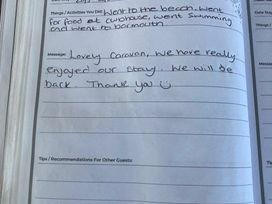 Things / Activities You Did: Went to the beach. Went
for food at clubhouse, went swimming
and went to barmouth
Message: Lovely Caravan, we have really
enjoyed our stay. We will be
back. Thank you
Tips / Recommendations For Other Guests: